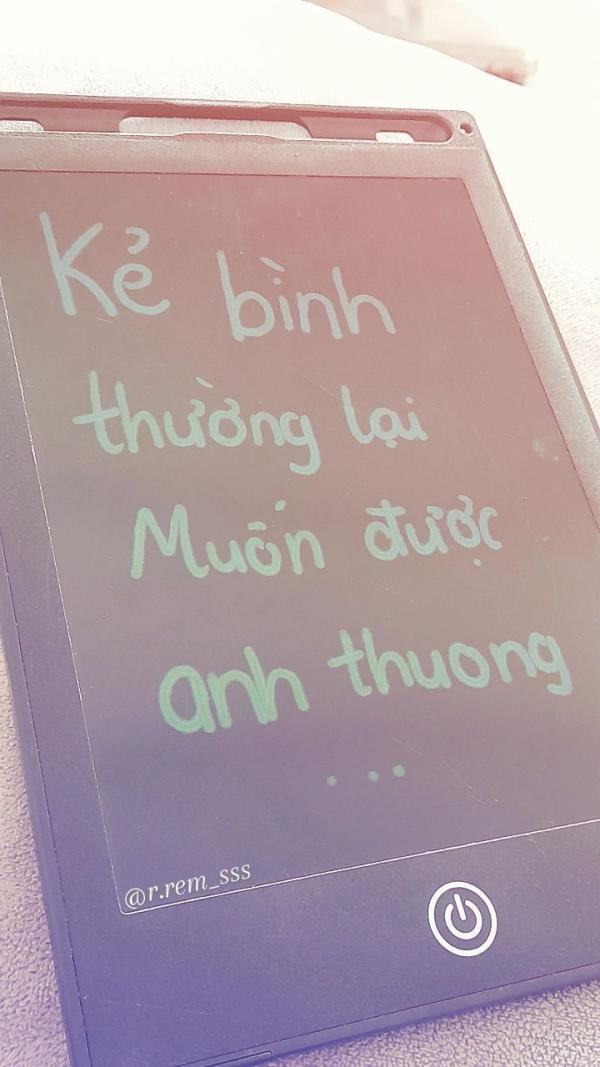 Kẻ bình
thường lại
Muốn được
anh thuong
...
@r.rem_sss